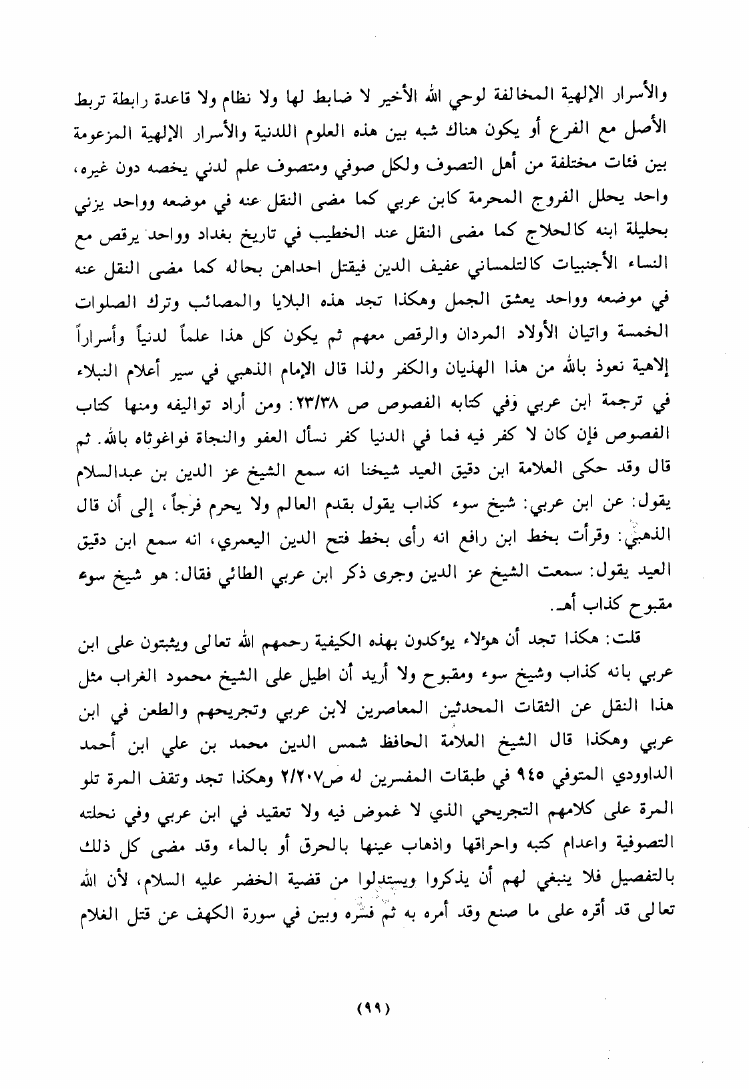 والأسرار الإلهية المخالفة لوحي الله الأخير لا ضابط لها ولا نظام ولا قاعدة رابطة تربط
الأصل مع الفرع أو يكون هناك شبه بين هذه العلوم اللدنية والأسرار الإلهية المزعومة
بين فئات مختلفة من أهل التصوف ولكل صوفي ومتصوف علم لدني يخصه دون غيره،
واحد يحلل الفروج المحرمة كابن عربي كما مضى النقل عنه في موضعه وواحد يزني
بحليلة ابنه كالحلاج كما مضى النقل عند الخطيب في تاريخ بغداد وواحد يرقص مع
النساء الأجنبيات كالتلمساني عفيف الدين فيقتل احداهن بحاله كما مضى النقل عنه
في موضعه وواحد يعشق الجمل وهكذا تجد هذه البلايا والمصائب وترك الصلوات
الخمسة واتيان الأولاد المردان والرقص معهم ثم يكون كل هذا علماً لدنياً وأسراراً
إلاهية نعوذ بالله من هذا الهذيان والكفر ولذا قال الإمام الذهبي في سير أعلام النبلاء
في ترجمة ابن عربي وفي كتابه الفصوص ص ٢٣/٣٨: ومن أراد تواليفه ومنها كتاب
الفصوص فإن كان لا كفر فيه فما في الدنيا كفر نسأل العفو والنجاة فواغوثاه بالله. ثم
قال وقد حكى العلامة ابن دقيق العيد شيخنا انه سمع الشيخ عز الدين بن عبدالسلام
يقول: عن ابن عربي: شيخ سوء كذاب يقول بقدم العالم ولا يحرم فرجاً، إلى أن قال
الذهبي: وقرأت بخط ابن رافع انه رأى بخط فتح الدين اليعمري، انه سمع ابن دقيق
العيد يقول: سمعت الشيخ عز الدين وجرى ذكر ابن عربي الطائي فقال: هو شيخ سوء
مقبوح كذاب أهـ.
قلت: هكذا تجد أن هؤلاء يؤكدون بهذه الكيفية رحمهم الله تعالى ويثبتون على ابن
عربي بانه كذاب وشيخ سوء ومقبوح ولا أريد أن اطيل على الشيخ محمود الغراب مثل
هذا النقل عن الثقات المحدثين المعاصرين لابن عربي وتجريحهم والطعن في ابن
عربي وهكذا قال الشيخ العلامة الحافظ شمس الدين محمد بن علي ابن أحمد
الداوودي المتوفي ٩٤٥ في طبقات المفسرين له ص٢/٢٠٧ وهكذا تجد وتقف المرة تلو
المرة على كلامهم التجريحي الذي لا غموض فيه ولا تعقيد في ابن عربي وفي نحلته
التصوفية واعدام كتبه واحراقها واذهاب عينها بالحرق أو بالماء وقد مضى كل ذلك
بالتفصيل فلا ينبغي لهم أن يذكروا ويستدلوا من قضية الخضر عليه السلام، لأن الله
تعالى قد أقره على ما صنع وقد أمره به ثم فسره وبين في سورة الكهف عن قتل الغلام
(٩٩)